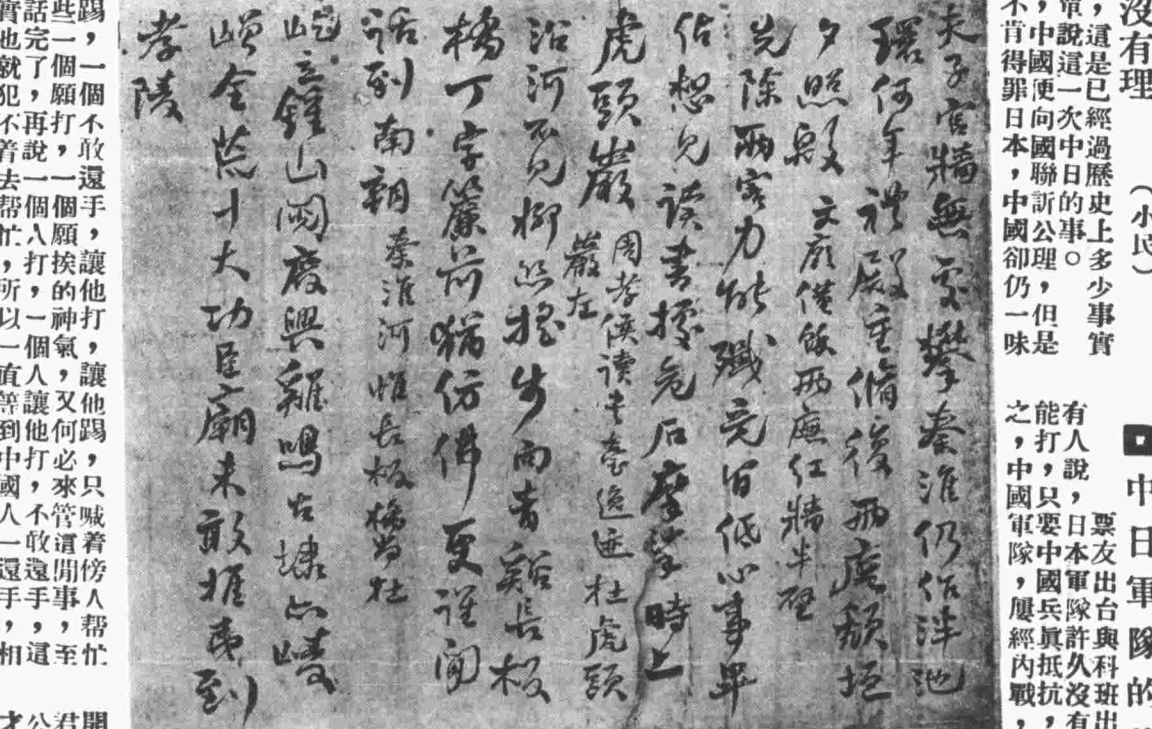 沒有理
（小民）
，這是已經過歷史上多少事實
說這一次中日的事。
，中國便向國聯訴公理，但是
不肯得罪日本，中國卻仍一味
中日軍隊的
票友出台與科班出
有人說，日本軍隊許久沒有
能打，只要中國兵眞抵抗，
之，中國軍隊，屢經內戰，
夫子宮牆無處攀秦淮仍作泮池
環何年禮殿重脩後兩廡頹垣
夕照殷 文廟僅餘兩廡紅牆半壁
先除兩害力能殲竟百低心事畢
佔想見讀書據危石摩挲時上
虎頭巖 周孝侯讀書臺遺迹杜虎頭
巖左
沿河不見柳絲搖步向青谿長板
橋丁字簾前猶仿佛更誰閒
話到南朝 秦淮河惟長板橋尚杜
屹立鍾山閱廢興雞鳴古埭亦崚
嶒全荒十大功臣廟未敢摧夷到
孝陵
踢，一個不敢還手，讓他打，讓他踢，只喊着傍人帮忙
些一個願打，一個願挨的神氣，又何必來管這閒事，至
話完了，再說一個人打，一個人讓他打，不敢還手，這
實也就犯不着去帮忙，所以一直等到中國人一還手，相
開
君
公
才